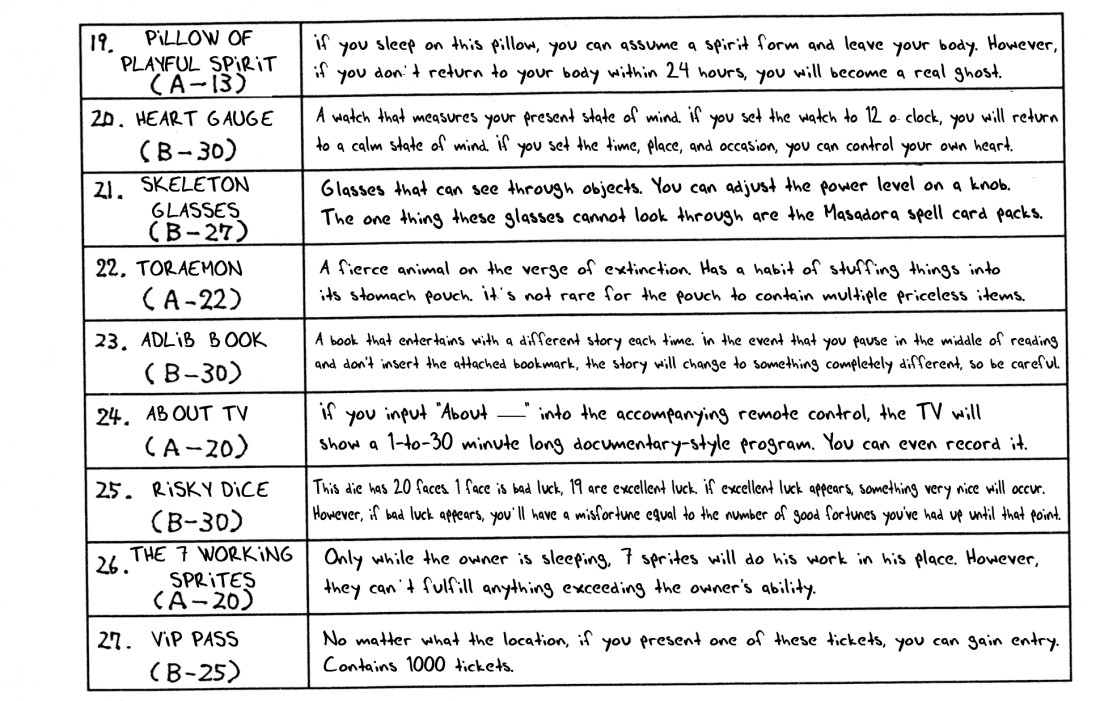 19. PiLLOW OF
PLAYFUL SPiRiT
(A-13)
if you sleep on this pillow, you can assume a spirit form and leave your body. However,
if you don't return to your body within 24 hours, you will become a real ghost.
20. HEART GAUGE
(B-30)
A watch that measures your present state of mind. if you set the watch to 12 o clock, you will return
to a calm state of mind. if you set the time, place, and occasion, you can control your own heart.
21. SKELETON
GLASSES
(B-27)
Glasses that can see through objects. You can adjust the power level on a knob.
The one thing these glasses cannot look through are the Masadora spell card packs.
22. TORAEMON
(A-22)
A fierce animal on the verge of extinction. Has a habit of stuffing things into
its stomach pouch. it's not rare for the pouch to contain multiple priceless items.
23. ADLiB BOOK
(B-30)
A book that entertains with a different story each time. in the event that you pause in the middle of reading
and don't insert the attached bookmark, the story will change to something completely different, so be careful.
24. ABOUT TV
(A-20)
if you input "About ___" into the accompanying remote control, the TV will
show a 1-to-30 minute long documentary-style program. You can even record it.
25. RiSKY DiCE
(B-30)
This die has 20 faces. 1 face is bad luck, 19 are excellent luck. if excellent luck appears, something very nice will occur.
However, if bad luck appears, you'll have a misfortune equal to the number of good fortunes you've had up until that point.
26. THE 7 WORKiNG
SPRiTES
(A-20)
Only while the owner is sleeping, 7 sprites will do his work in his place. However,
they can't fulfill anything exceeding the owner's ability.
27. ViP PASS
(B-25)
No matter what the location, if you present one of these tickets, you can gain entry.
Contains 1000 tickets.